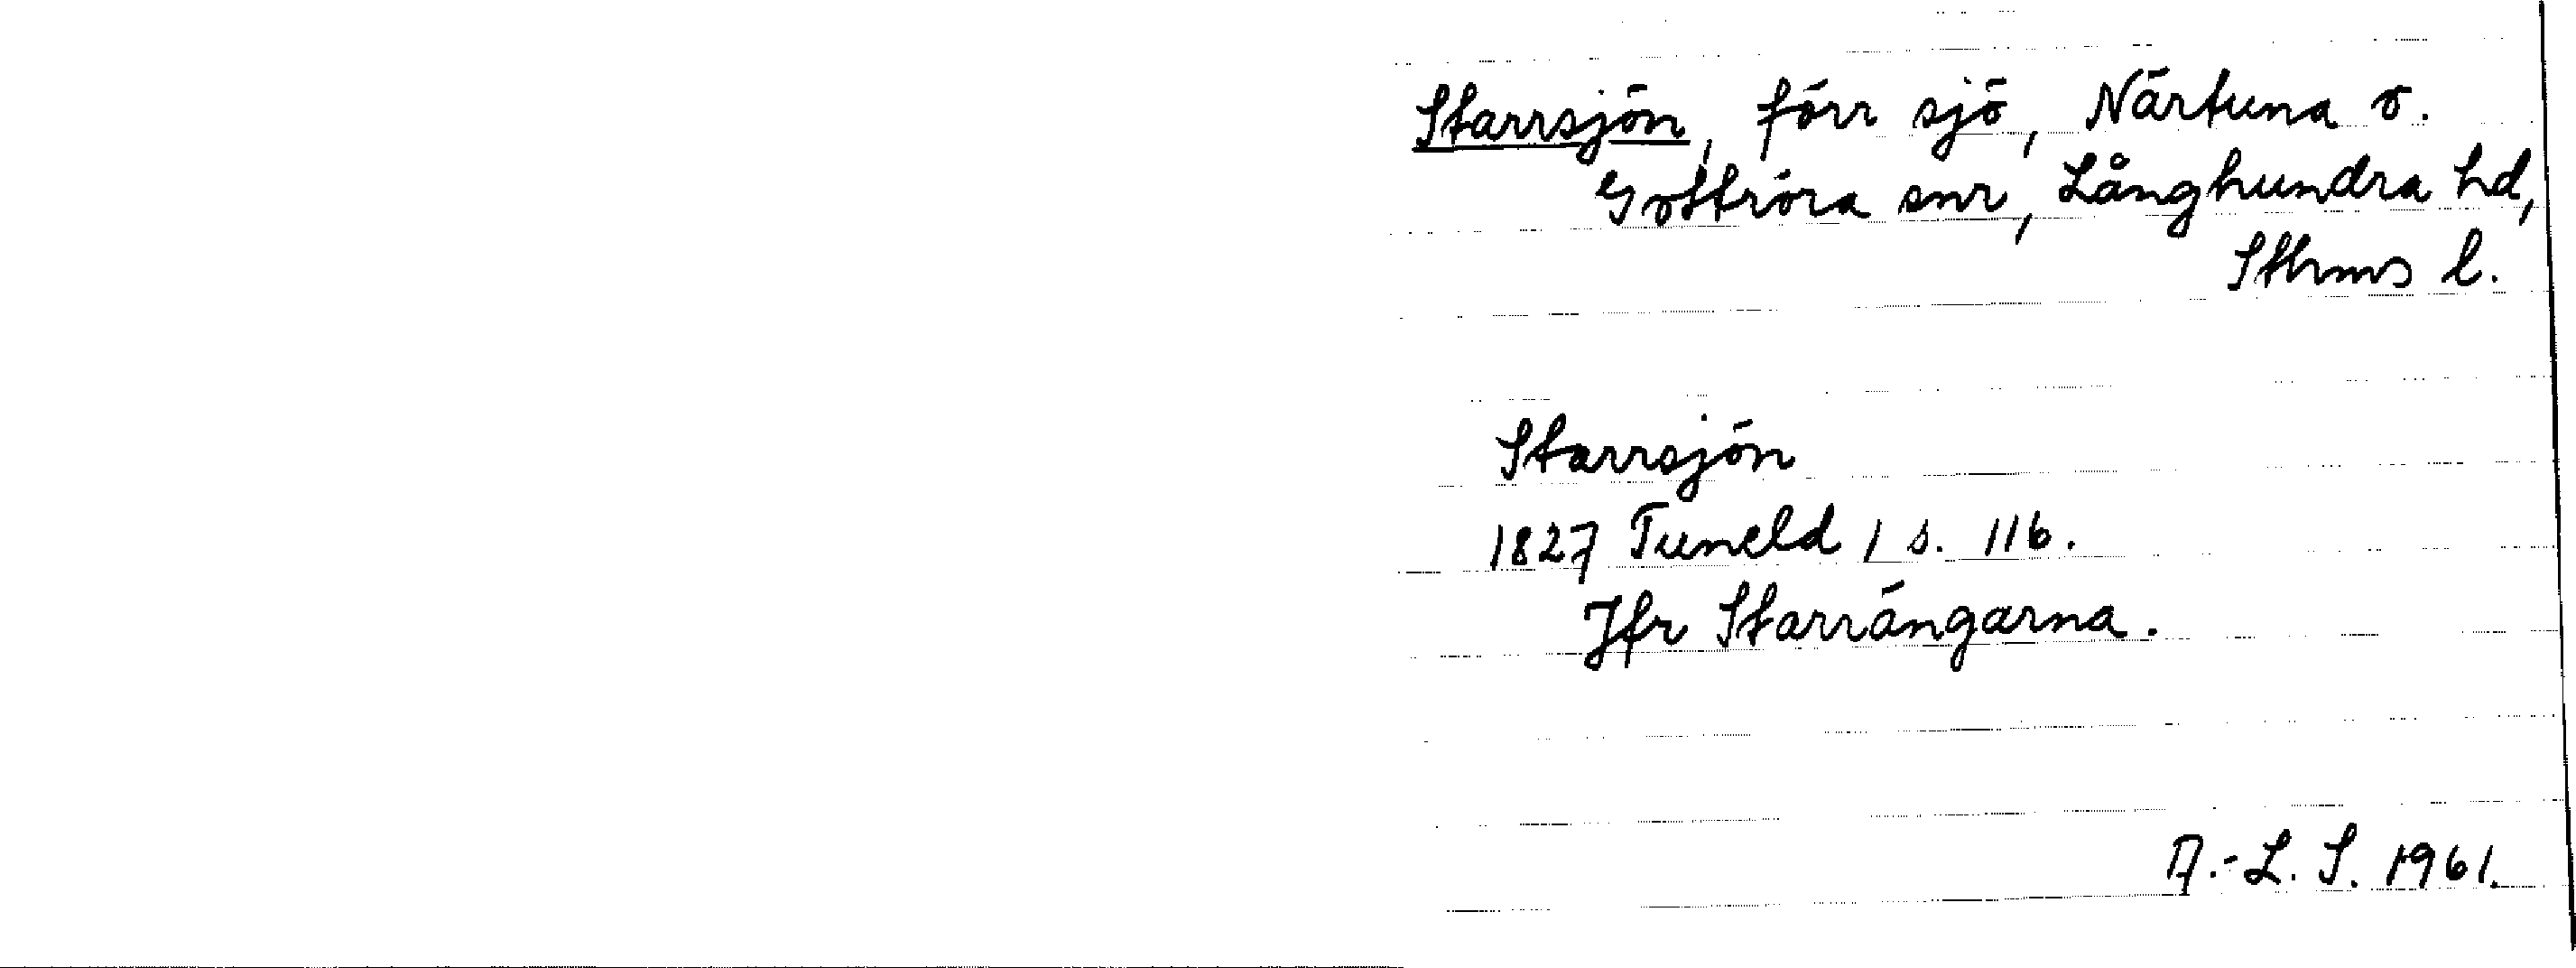 Starrsjön, förr sjö, Närtuna o.
Gottröra snr, Långhundra hd,
Sthms l.
Starrsjön
1827 Tuneld 1 s. 116.
Jfr Starrängarna.
A.-L. S. 1961.